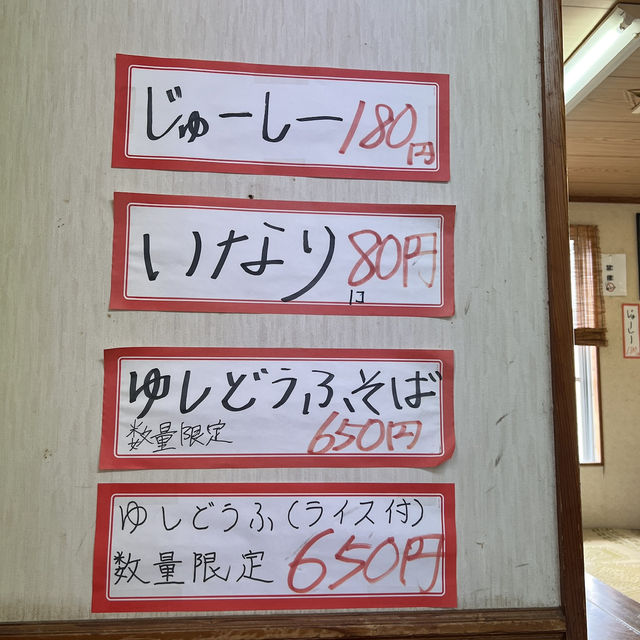 じゅーしー 180円
いなり 80円
1コ
ゆしどうふそば
数量限定 650円
ゆしどうふ(ライス付)
数量限定 650円
じゅーしー